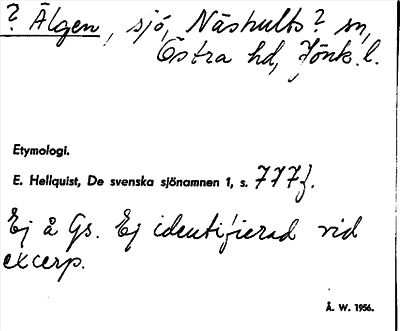 ? Älgen, sjö, Näshults? sn,
Östra hd, Jönk. l.
Etymologi.
E. Hellquist, De svenska sjönamnen 1, s. 777f.
Ej å Gs. Ej identifierad vid
excerp.
Å. W. 1956.